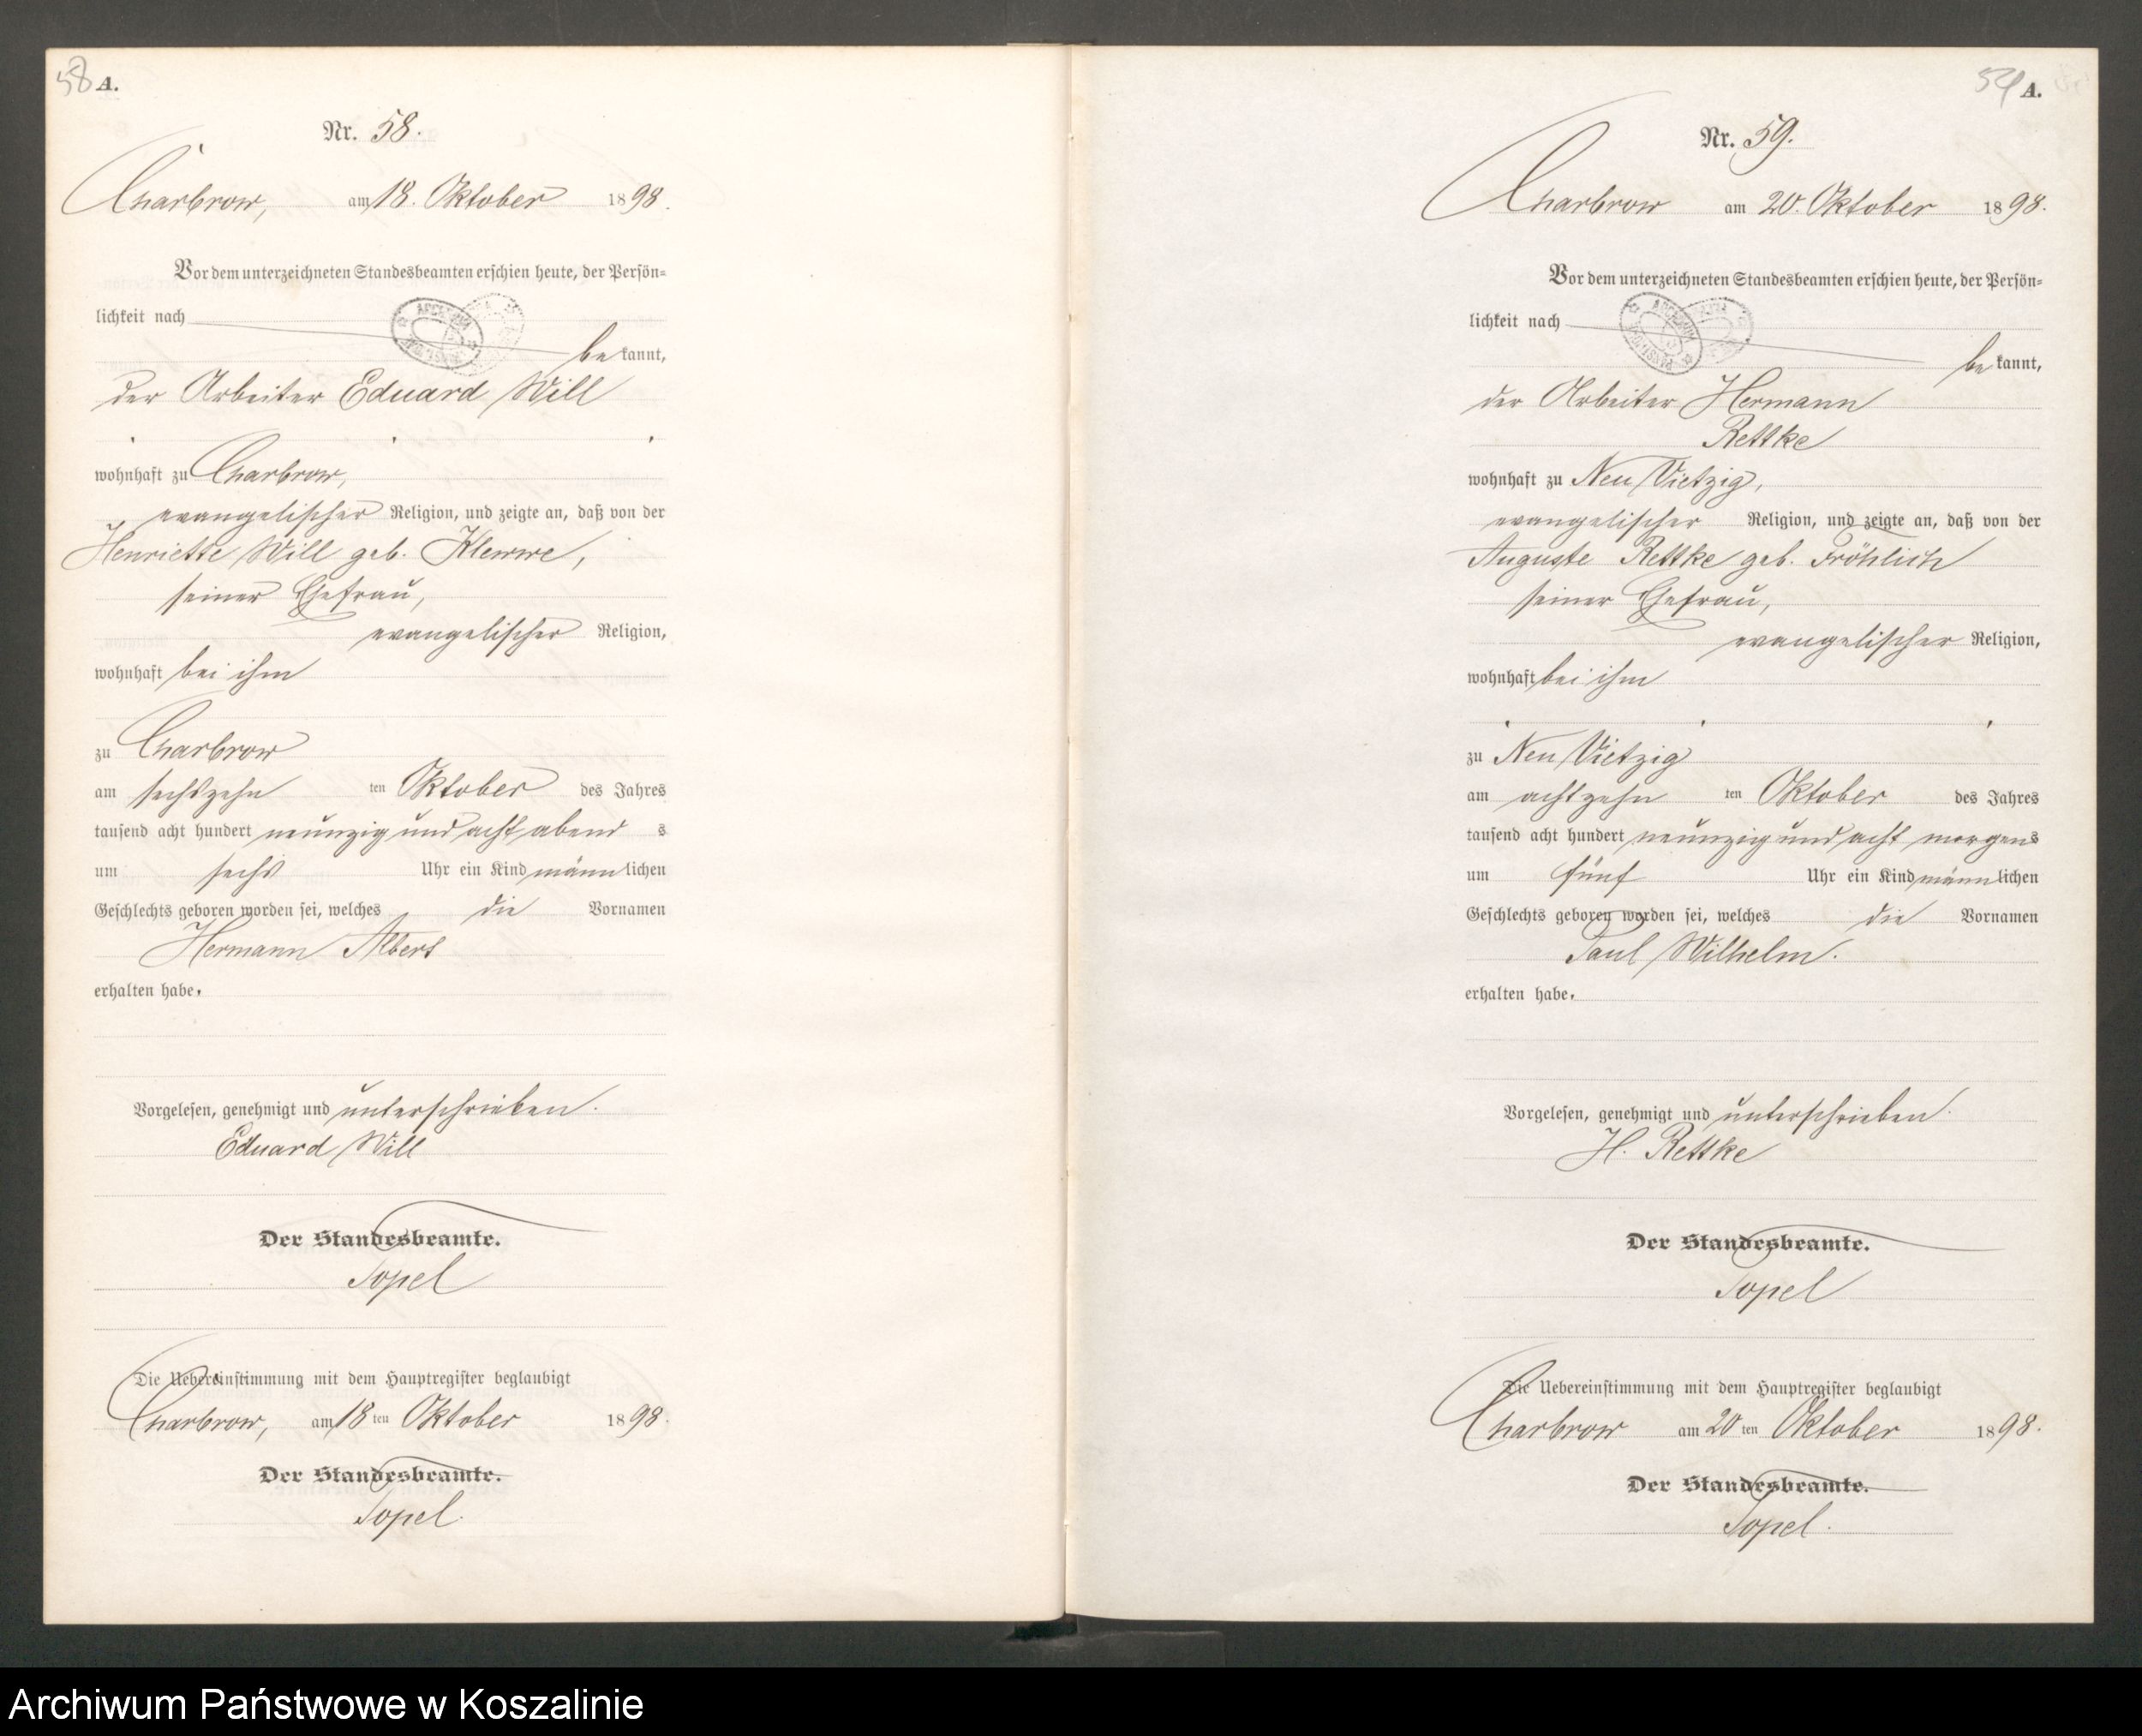 58 A.
Nr. 58.
Charbrow, am 18. Oktober 1898.
Vor dem unterzeichneten Standesbeamten erschien heute, der Persön-
lichkeit nach
be kannt,
der Arbeiter Eduard Will
wohnhaft zu Charbrow,
evangelischer Religion, und zeigte an, daß von der
Henriette Will geb. Klewwe,
seiner Ehefrau,
evangelischer Religion,
wohnhaft bei ihm
zu Charbrow
am sechszehn ten Oktober des Jahres
tausend acht hundert neunzig und acht abend s
um sechs Uhr ein Kind männ lichen
Geschlechts geboren worden sei, welches die Vornamen
Hermann Albert
erhalten habe.
Vorgelesen, genehmigt und unterschrieben.
Eduard Will
Der Standesbeamte.
Topel
Die Uebereinstimmung mit dem Hauptregister beglaubigt
Charbrow, am 18 ten Oktober 1898.
Der Standesbeamte.
Topel.
59 A.
Nr. 59.
Charbrow am 20. Oktober 1898.
Vor dem unterzeichneten Standesbeamten erschien heute, der Persön-
lichkeit nach
be kannt,
der Arbeiter Hermann
Rettke
wohnhaft zu Neu Vietzig,
evangelischer Religion, und zeigte an, daß von der
Auguste Rettke geb. Fröhlich
seiner Ehefrau,
evangelischer Religion,
wohnhaft bei ihm
zu Neu Vietzig
am achtzehn ten Oktober des Jahres
tausend acht hundert neunzig und acht morgens
um fünf Uhr ein Kind männ lichen
Geschlechts geboren worden sei, welches die Vornamen
Paul Wilhelm.
erhalten habe.
Vorgelesen, genehmigt und unterschrieben.
H. Rettke
Der Standesbeamte.
Topel
Die Uebereinstimmung mit dem Hauptregister beglaubigt
Charbrow am 20 ten Oktober 1898.
Der Standesbeamte.
Topel.
Archiwum Państwowe w Koszalinie